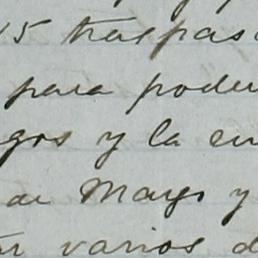 15 traspas
para poder
gos y la en
de Mayo y
varios d